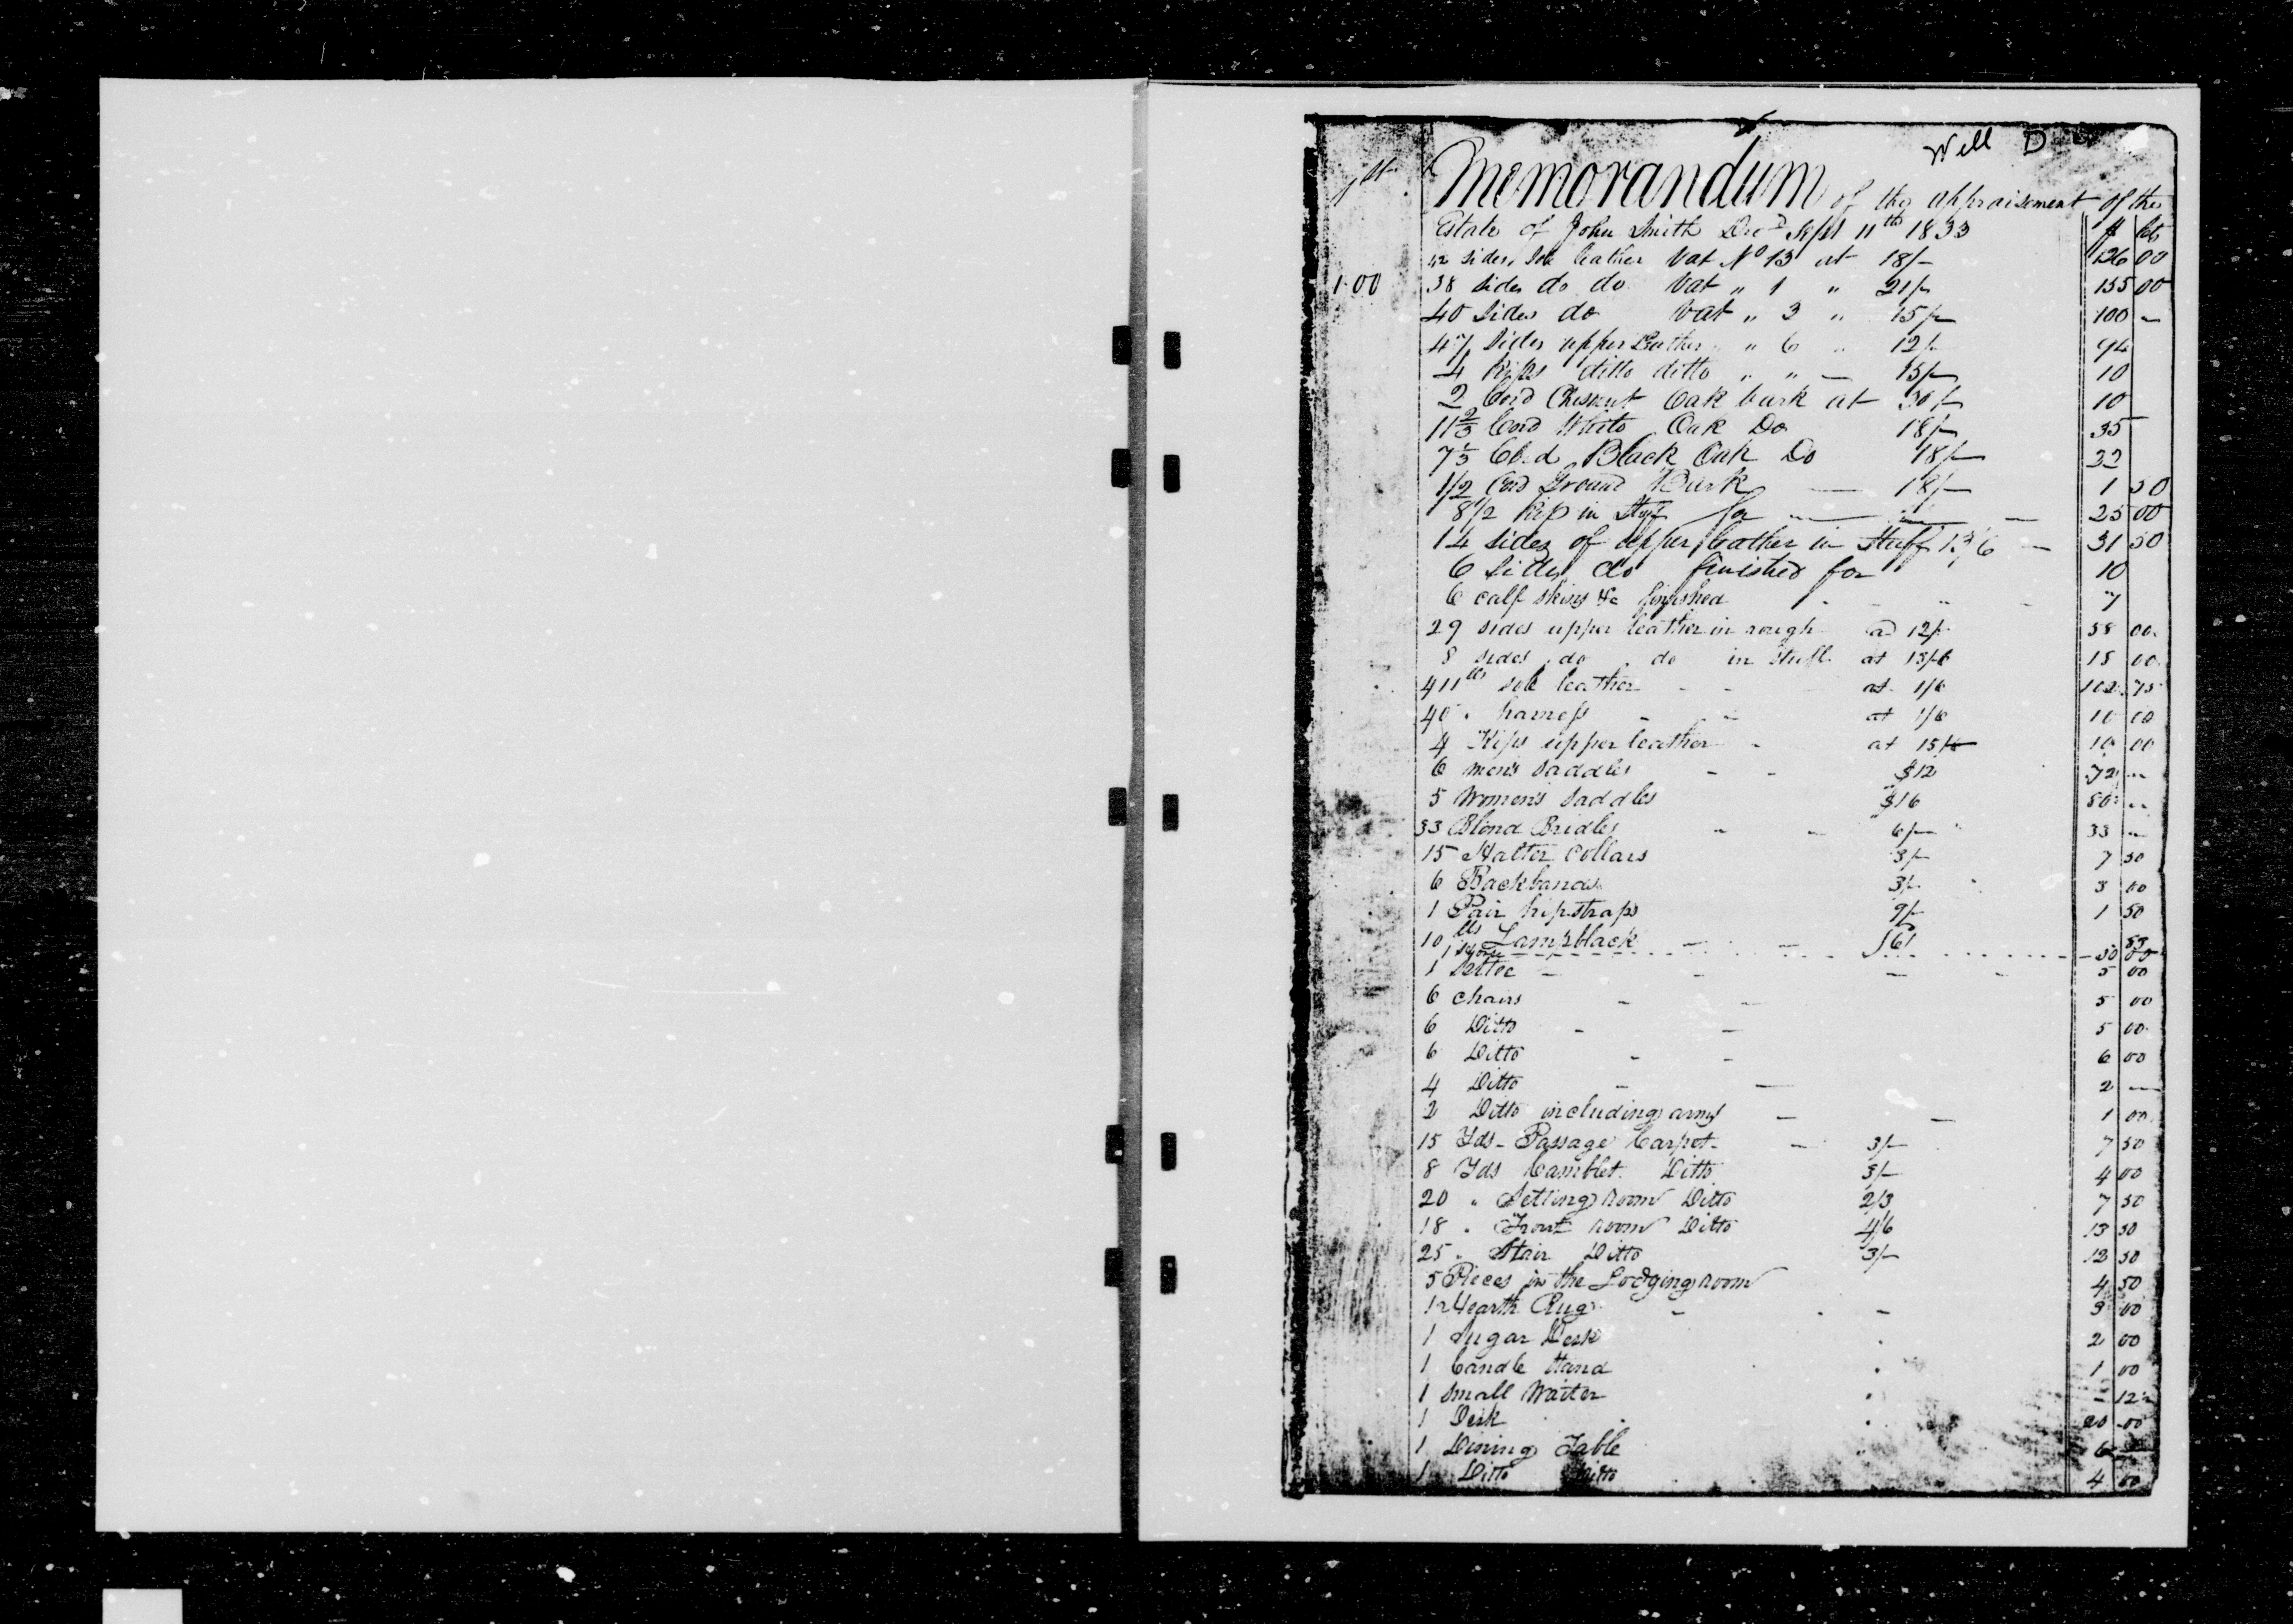 Will D
Memorandum of the appraisement of the
Estate of John Smith Decd Sept 11th 1833 $ cts
42 sides Sole leather Vat No 13 at 18/- 126 00
1.00 38 sides do do Vat " 1 " 21/- 133 00
40 sides do vat " 3 " 15/- 100 -
47 sides upper Leather " 6 " 12/- 94
4 Kips ditto ditto " " - 15/- 10
2 Cord Chesnut Oak bark at 30/- 10
11 2/3 Cord White Oak Do 18/- 35
7 1/3 Cord Black Oak Do 18/- 22
1/2 Cord Ground Bark - 18/- 1 50
8 1/2 Kip in Stuff for 25 00
14 sides of upper leather in Stuff 13/6 - 31 50
6 sides do finished for 10
6 calf skins &c finished 7
29 sides upper leather in rough a 12/- 58 00
8 sides do do in stuff at 13/6 18 00
411 lbs sole leather - - at 1/6 102 75
40 " harness - - at 1/6 10 00
4 Kips upper leather - at 15/- 10 00
6 men's saddles - - $12 72 -
5 Women's saddles $16 80 -
33 Blond Bridles - - 6/- 33 -
15 Halter Collars 3/- 7 50
6 Backbands 3/- 3 00
1 Pair hipstraps 9/- 1 50
10 lbs Lampblack - - 83
1 - 50 00
1 Settee - - - - 5 00
6 Chairs - - 5 00
6 Ditto - - 5 00
6 Ditto - - 6 00
4 Ditto - - 2 -
2 Ditto including arms - - 1 00
15 Yds - Passage Carpet - - 3/- 7 50
8 Yds Camblet Ditto 3/- 4 00
20 " Setting room Ditto 2/3 7 50
18 " Front room Ditto 4/6 13 50
25 " Stair Ditto 3/- 12 50
5 Pieces in the Lodging room 4 50
1 Hearth Rug - - 3 00
1 Sugar Desk 2 00
1 Candle Stand 1 00
1 Small Waiter - 12
1 Desk 20 00
1 Dining Table 6
1 Ditto Ditto 4 00